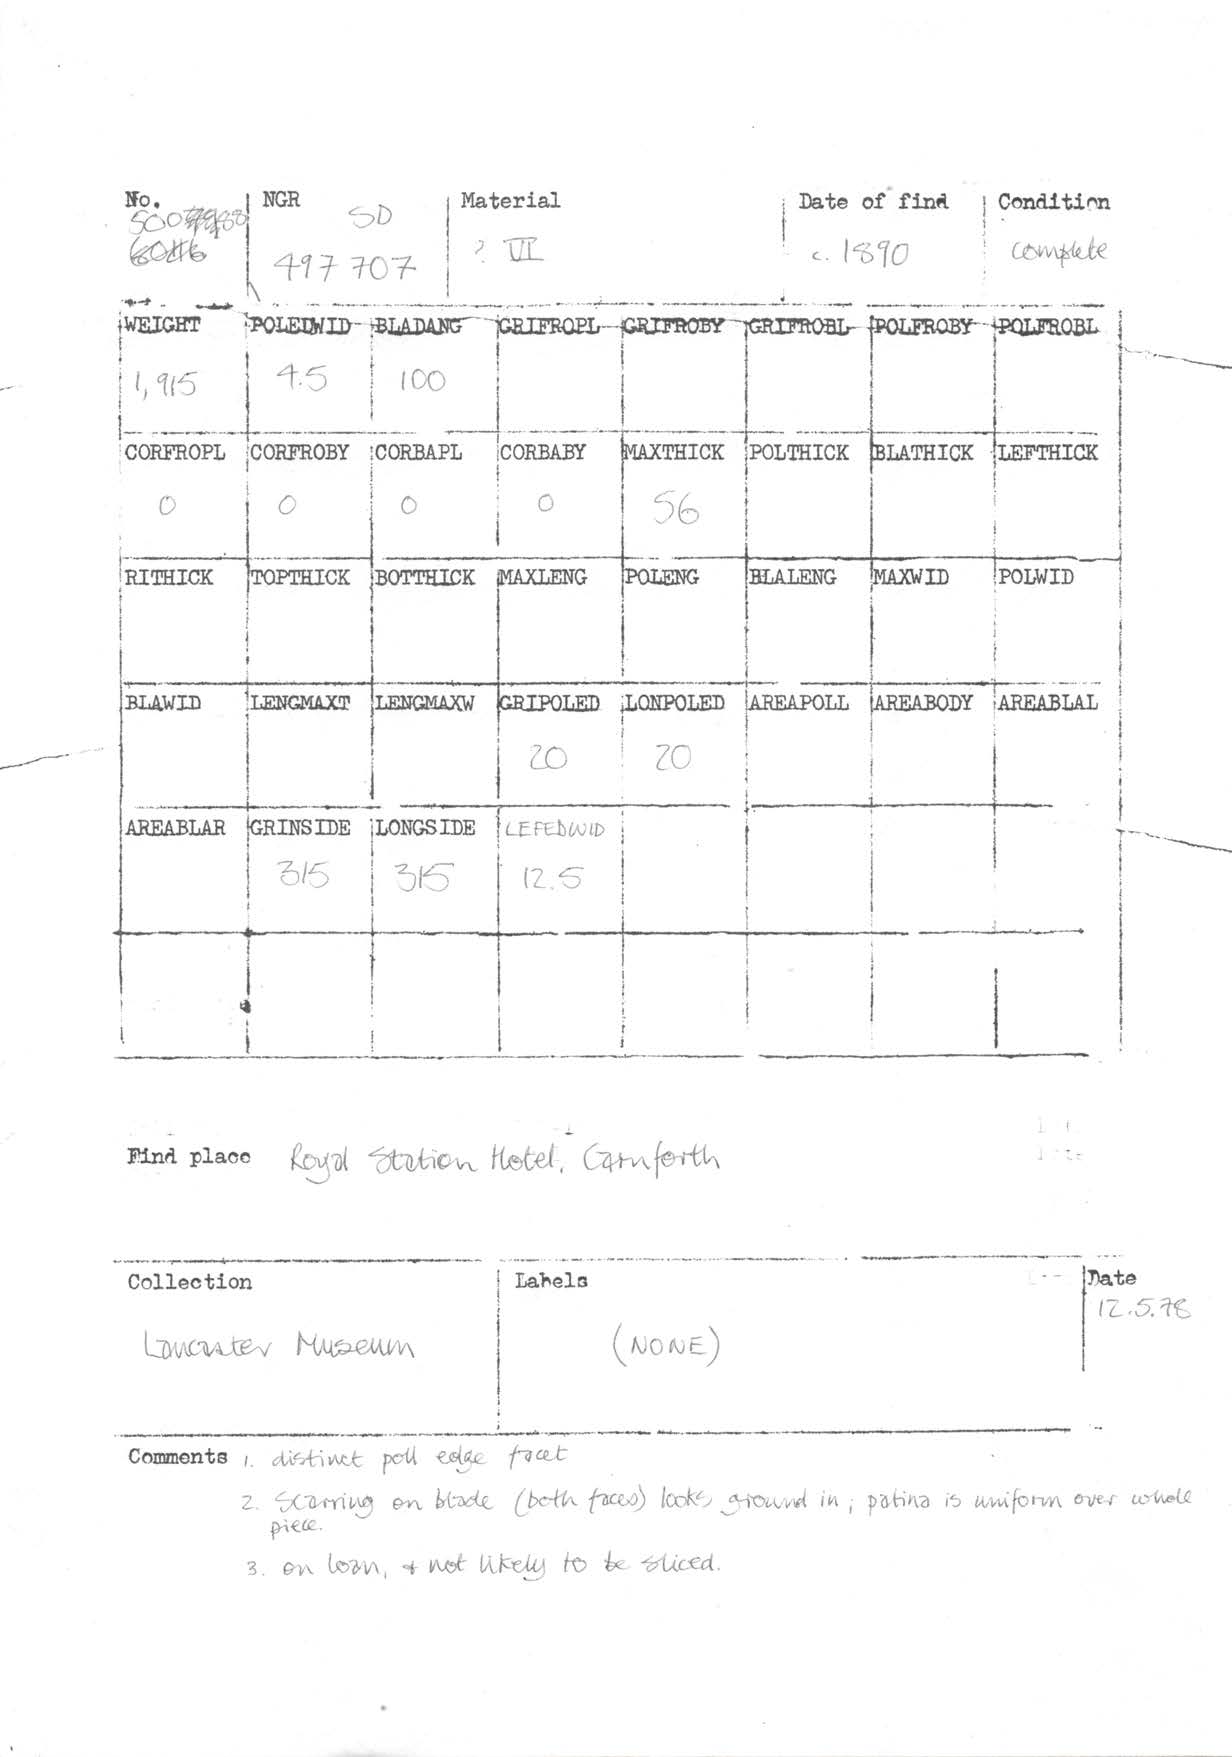 No. NGR Material Date of find Condition
SD
497 707 ? VI c. 1890 complete
WEIGHT POLEDWID BLADANG GRIFROPL GRIFROBY GRIFROBL POLFROBY POLFROBL
1,915 4.5 100
CORFROPL CORFROBY CORBAPL CORBABY MAXTHICK POLTHICK BLATHICK LEFTHICK
0 0 0 0 56
RITHICK TOPTHICK BOTTHICK MAXLENG POLENG BLALENG MAXWID POLWID
BLAWID LENGMAXT LENGMAXW GRIPOLED LONPOLED AREAPOLL AREABODY AREABLAL
20 20
AREABLAR GRINSIDE LONGSIDE LEFEDWID
315 315 12.5
Find place Royal Station Hotel, Carnforth
Collection Labels Date
12.5.78
Lancaster Museum (NONE)
Comments 1. distinct poll edge facet
2. Scarring on blade (both faces) looks ground in; patina is uniform over whole
piece.
3. on loan, & not likely to be sliced.